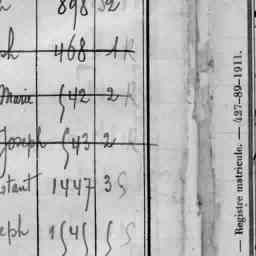 898 32
468 1 R
Marie 542 2 R
Joseph 543 2 R
stant 1447 3 S
eph 1545 5 S
— Registre matricule. — 427-89-1911.